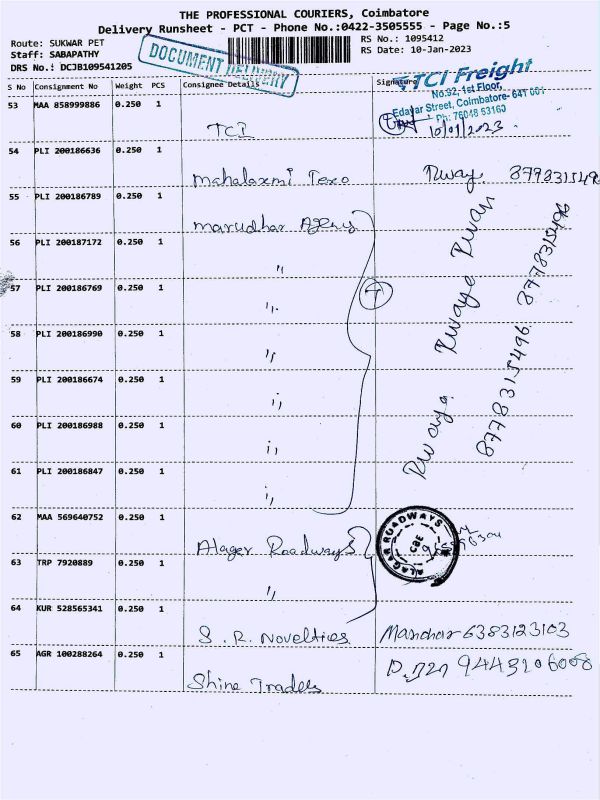 THE PROFESSIONAL COURIERS, Coimbatore
Delivery Runsheet - PCT - Phone No.:0422-3505555 - Page No.:5
Route: SUKWAR PET
RS No.: 1095412
Staff: SABAPATHY
RS Date: 10-Jan-2023
DRS No.: DCJB109541205
DOCUMENT DELIVERY
S No Consignment No Weight PCS Consignee Details Signature
TCI Freight
No.92, 1st Floor,
Edayar Street, Coimbatore- 641 001
53 MAA 858999886 0.250 1
TCI
10/01/2023.
54 PLI 200186636 0.250 1
Mahalaxmi Texo
55 PLI 200186789 0.250 1
Marudhar Agency
56 PLI 200187172 0.250 1
"
57 PLI 200186769 0.250 1
"
58 PLI 200186990 0.250 1
"
59 PLI 200186674 0.250 1
"
60 PLI 200186988 0.250 1
"
61 PLI 200186847 0.250 1
"
8778315496
8778315496
62 MAA 569640752 0.250 1
Alager Roadways
ALAGAR ROADWAYS
CBE
63 TRP 7920889 0.250 1
"
64 KUR 528565341 0.250 1
S. R. Novelties Manohar 6383123103
65 AGR 100288264 0.250 1
Shine Traders